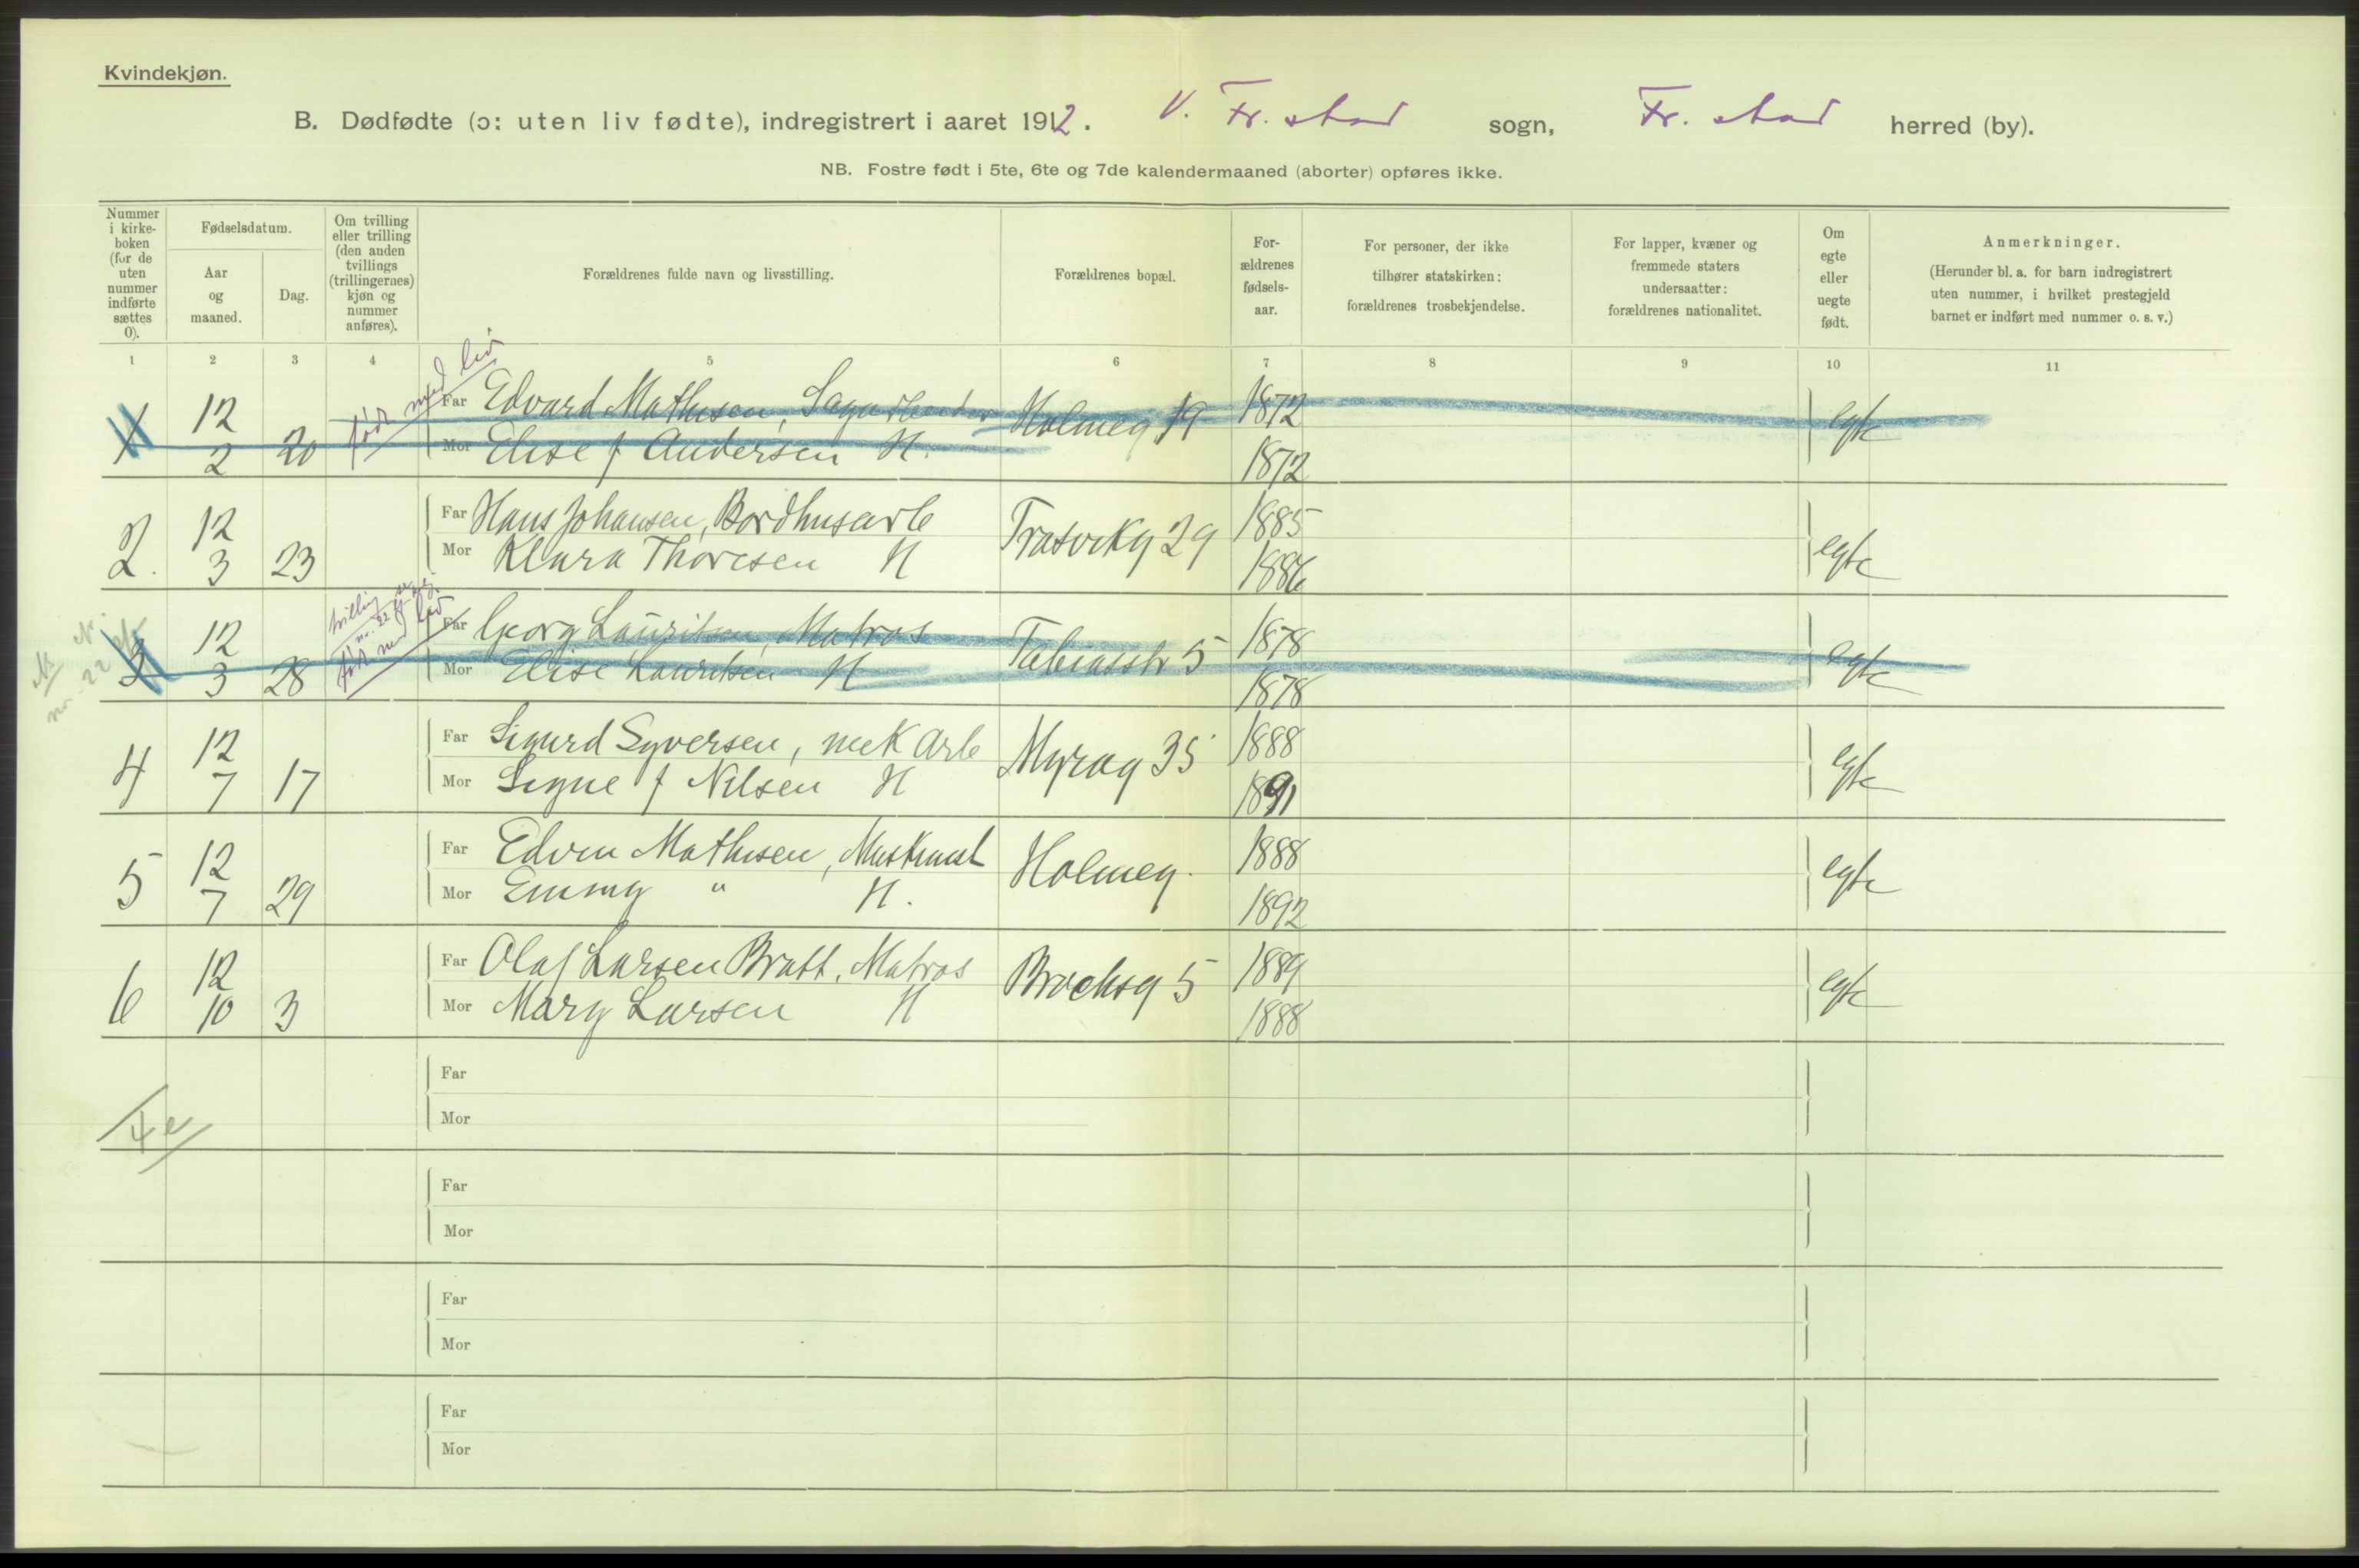 Kvindekjøn.
B. Dødfødte (ɔ: uten liv fødte), indregistrert i aaret 1912. V. Fr. stad sogn, Fr. stad herred (by).
NB. Fostre født i 5te, 6te og 7de kalendermaaned (aborter) opføres ikke.
Nummer i kirke-boken (for de uten nummer indførte sættes 0).
Fødselsdatum.
Aar og maaned.
Dag.
Om tvilling eller trilling (den anden tvillings (trillingernes) kjøn og nummer anføres).
Forældrenes fulde navn og livsstilling.
Forældrenes bopæl.
For-ældrenes fødsels-aar.
For personer, der ikke tilhører statskirken: forældrenes trosbekjendelse.
For lapper, kvæner og fremmede staters undersaatter: forældrenes nationalitet.
Om egte eller uegte født.
Anmerkninger.
(Herunder bl. a. for barn indregistrert uten nummer, i hvilket prestegjeld barnet er indført med nummer o. s. v.)
1 2 3 4 5 6 7 8 9 10 11
født med liv
1 12 2 20 Far Edvard Mathisen, Sagarbeider Holmeg 19 1872 egte
Mor Elise f Andersen H. 1872
2. 12 3 23 Far Hans Johansen, Bordhusarb Trasvikg 29 1885 egte
Mor Klara Thoresen H 1886
født med liv
no. 22
3 12 3 28 Far Georg Lauritsen, Matros Tobiasstr 5 1878 egte
Mor Elise Lauritsen H 1878
4 12 7 17 Far Sigurd Syversen, mek Arb Myrag 35 1888 egte
Mor Signe f Nilsen H 1891
5 12 7 29 Far Edvin Mathisen, Maskinist Holmeg. 1888 egte
Mor Emmy " H. 1892
6 12 10 3 Far Olaf Larsen Bratt, Matros Brochsg 5 1889 egte
Mor Mary Larsen H 1888
Far
Mor
4 e
Far
Mor
Far
Mor
Far
Mor